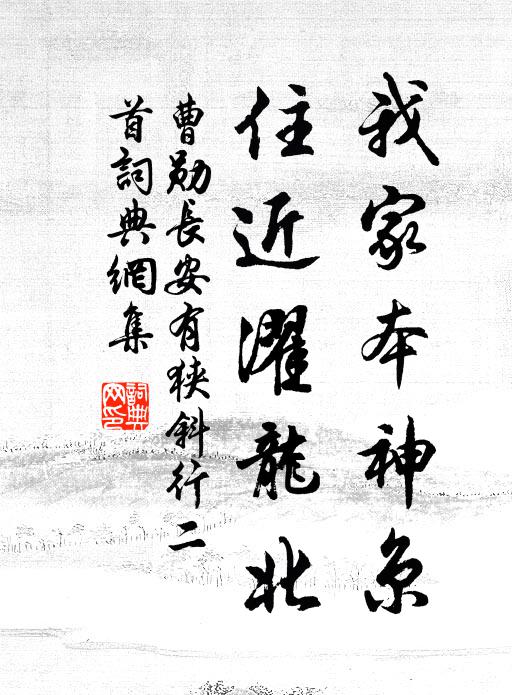 我家本神京
住近濯龍北
曹勛長安有狹斜行二
首詞典網集
詞典网印